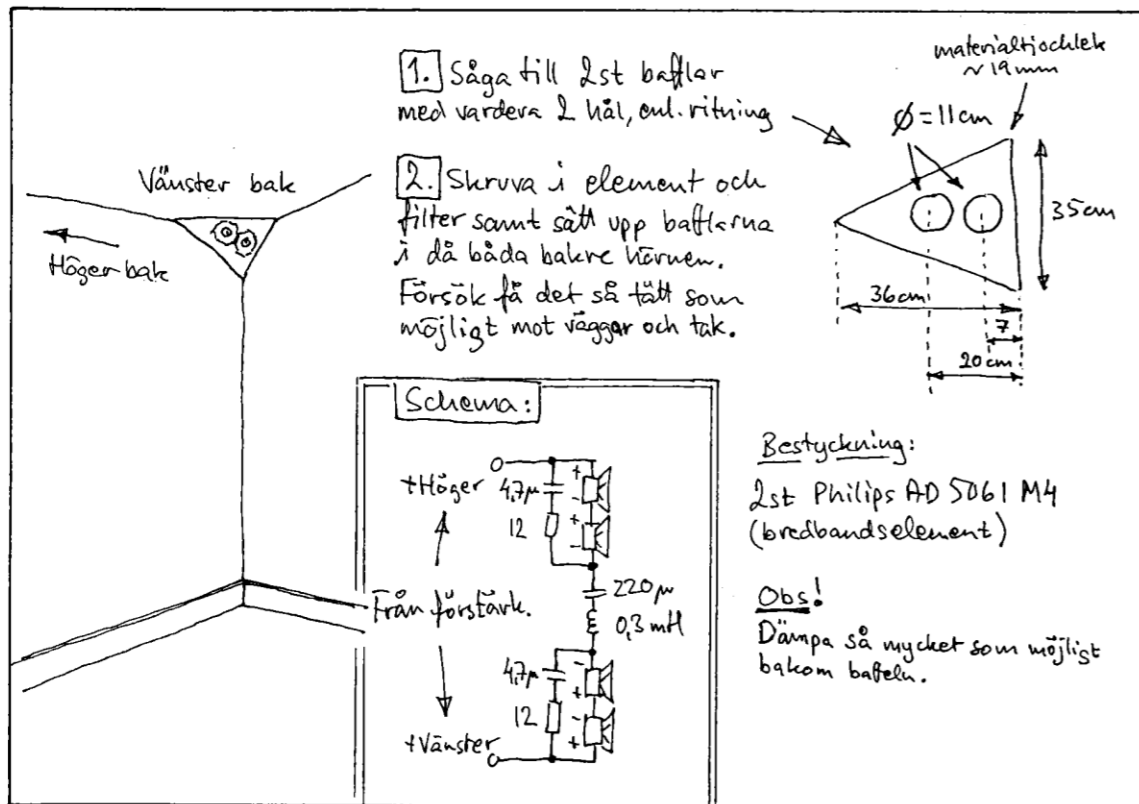 1. Såga till 2st bafflar
med vardera 2 hål, enl. ritning
2. Skruva i element och
filter samt sätt upp bafflarna
i då båda bakre hörnen.
Försök få det så tätt som
möjligt mot väggar och tak.
materialtjochlek
~19mm
Ø=11cm
35cm
36cm
7
20cm
Vänster bak
Höger bak
Schema:
+Höger
4,7μ
12
+
-
+
-
Från förstärk.
220μ
0,3 mH
4,7μ
12
-
+
-
+
+Vänster
Bestyckning:
2st Philips AD 5061 M4
(bredbandselement)
Obs!
Dämpa så mycket som möjligt
bakom bafeln.